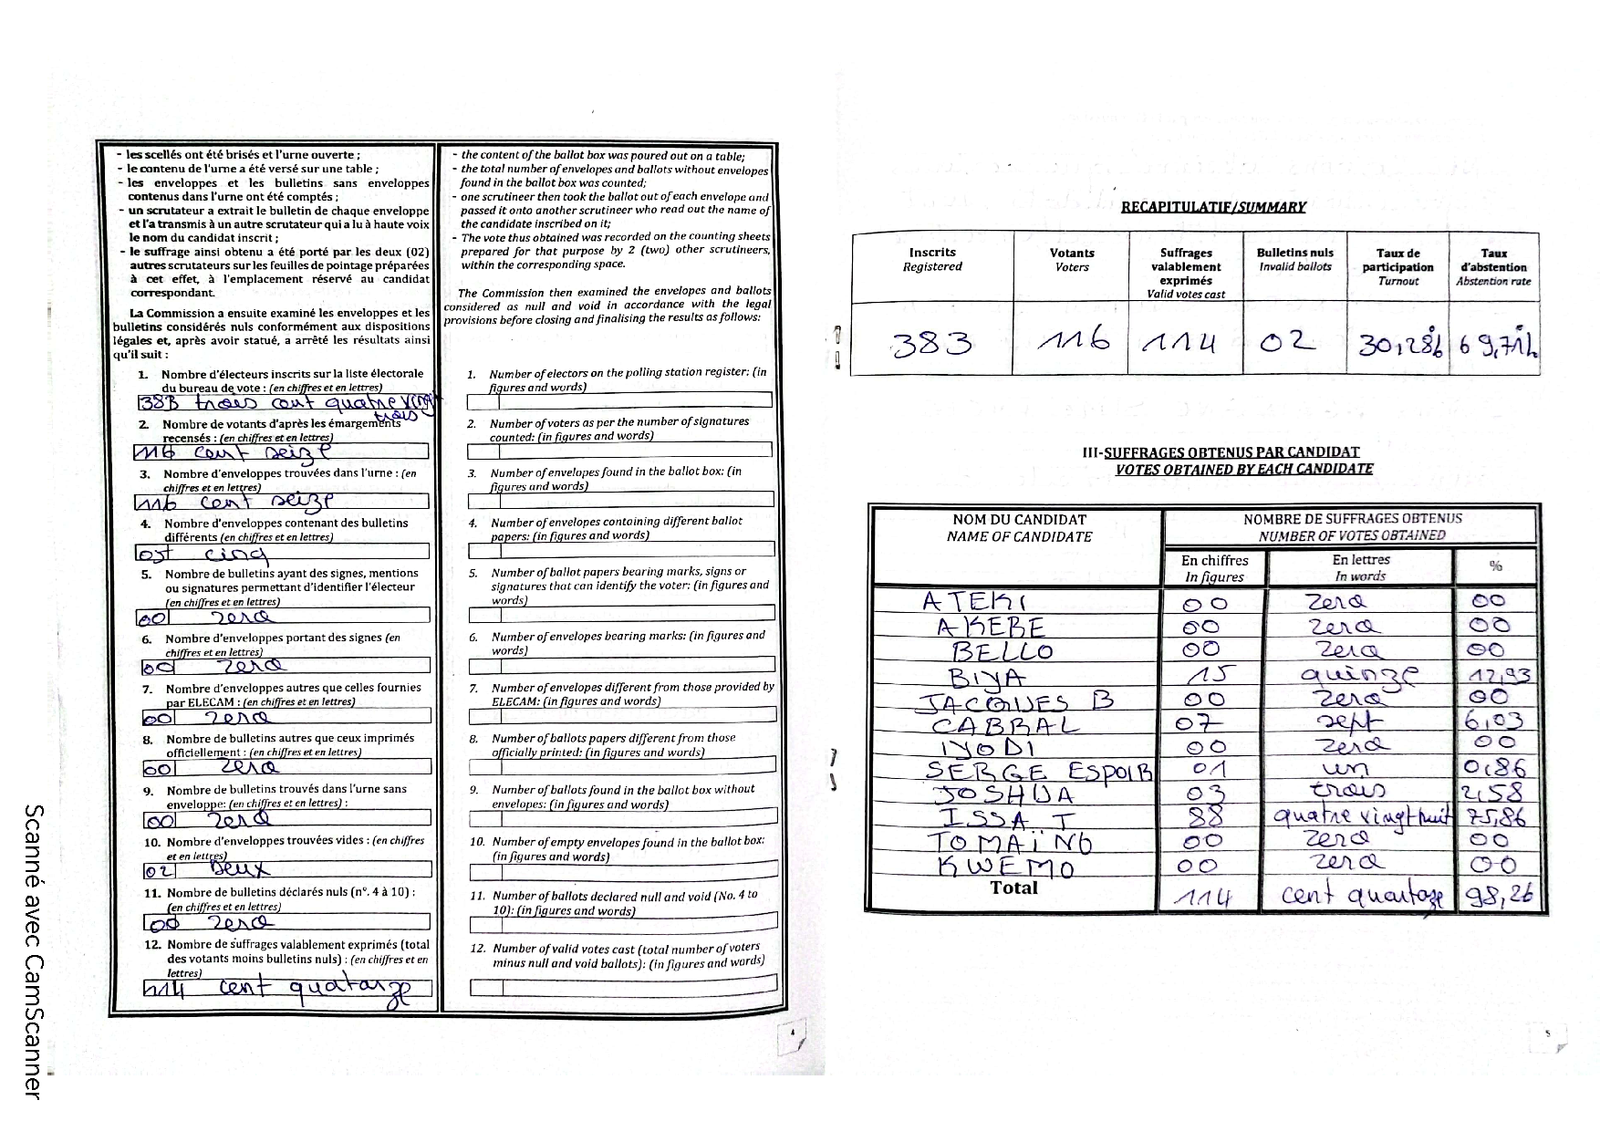 - les scellés ont été brisés et l'urne ouverte ;
- le contenu de l'urne a été versé sur une table ;
- les enveloppes et les bulletins sans enveloppes
contenus dans l'urne ont été comptés ;
- un scrutateur a extrait le bulletin de chaque enveloppe
et l'a transmis à un autre scrutateur qui a lu à haute voix
le nom du candidat inscrit ;
- le suffrage ainsi obtenu a été porté par les deux (02)
autres scrutateurs sur les feuilles de pointage préparées
à cet effet, à l'emplacement réservé au candidat
correspondant.
La Commission a ensuite examiné les enveloppes et les
bulletins considérés nuls conformément aux dispositions
légales et, après avoir statué, a arrêté les résultats ainsi
qu'il suit :
1. Nombre d'électeurs inscrits sur la liste électorale
du bureau de vote : (en chiffres et en lettres)
383 trois cent quatre vingt
trois
2. Nombre de votants d'après les émargements
recensés : (en chiffres et en lettres)
116 cent seize
3. Nombre d'enveloppes trouvées dans l'urne : (en
chiffres et en lettres)
116 cent seize
4. Nombre d'enveloppes contenant des bulletins
différents (en chiffres et en lettres)
05 cinq
5. Nombre de bulletins ayant des signes, mentions
ou signatures permettant d'identifier l'électeur
(en chiffres et en lettres)
00 zero
6. Nombre d'enveloppes portant des signes (en
chiffres et en lettres)
00 zero
7. Nombre d'enveloppes autres que celles fournies
par ELECAM : (en chiffres et en lettres)
00 zero
8. Nombre de bulletins autres que ceux imprimés
officiellement : (en chiffres et en lettres)
00 zero
9. Nombre de bulletins trouvés dans l'urne sans
enveloppe: (en chiffres et en lettres) :
00 zero
10. Nombre d'enveloppes trouvées vides : (en chiffres
et en lettres)
02 Deux
11. Nombre de bulletins déclarés nuls (n°. 4 à 10) :
(en chiffres et en lettres)
00 zero
12. Nombre de suffrages valablement exprimés (total
des votants moins bulletins nuls) : (en chiffres et en
lettres)
114 cent quatorze
- the content of the ballot box was poured out on a table;
- the total number of envelopes and ballots without envelopes
found in the ballot box was counted;
- one scrutineer then took the ballot out of each envelope and
passed it onto another scrutineer who read out the name of
the candidate inscribed on it;
- The vote thus obtained was recorded on the counting sheets
prepared for that purpose by 2 (two) other scrutineers,
within the corresponding space.
The Commission then examined the envelopes and ballots
considered as null and void in accordance with the legal
provisions before closing and finalising the results as follows:
1. Number of electors on the polling station register: (in
figures and words)
2. Number of voters as per the number of signatures
counted: (in figures and words)
3. Number of envelopes found in the ballot box: (in
figures and words)
4. Number of envelopes containing different ballot
papers: (in figures and words)
5. Number of ballot papers bearing marks, signs or
signatures that can identify the voter: (in figures and
words)
6. Number of envelopes bearing marks: (in figures and
words)
7. Number of envelopes different from those provided by
ELECAM: (in figures and words)
8. Number of ballots papers different from those
officially printed: (in figures and words)
9. Number of ballots found in the ballot box without
envelopes: (in figures and words)
10. Number of empty envelopes found in the ballot box:
(in figures and words)
11. Number of ballots declared null and void (No. 4 to
10): (in figures and words)
12. Number of valid votes cast (total number of voters
minus null and void ballots): (in figures and words)
4
RECAPITULATIF/SUMMARY
Inscrits Votants Suffrages valablement exprimés Bulletins nuls Taux de participation Taux d'abstention
Registered Voters Valid votes cast Invalid ballots Turnout Abstention rate
383 116 114 02 30,28% 69,71%
III-SUFFRAGES OBTENUS PAR CANDIDAT
VOTES OBTAINED BY EACH CANDIDATE
NOM DU CANDIDAT NOMBRE DE SUFFRAGES OBTENUS
NAME OF CANDIDATE NUMBER OF VOTES OBTAINED
En chiffres En lettres %
In figures In words
ATEKI 00 zero 00
AKERE 00 zero 00
BELLO 00 zero 00
BIYA 15 quinze 12,93
JACQUES B 00 zero 00
CABRAL 07 sept 6,03
IYODI 00 zero 00
SERGE ESPOIR 01 un 0,86
JOSHUA 03 trois 2,58
ISSA T 88 quatre vingt huit 75,86
TOMAÏNO 00 zero 00
KWEMO 00 zero 00
Total 114 cent quatorze 98,26
5
Scanné avec CamScanner